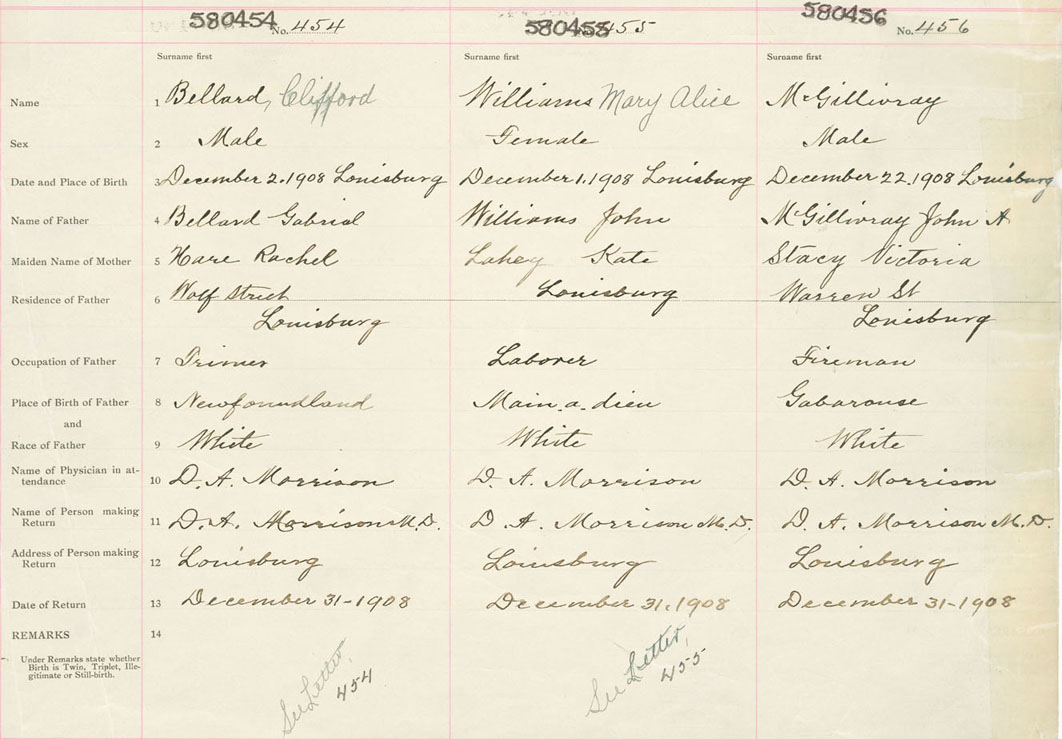 580454 No. 454 580455 455 580456 No. 456
Surname first Surname first Surname first
Name 1 Bellard, Clifford Williams Mary Alice McGillivray
Sex 2 Male Female Male
Date and Place of Birth 3 December 2. 1908 Louisburg December 1. 1908 Louisburg December 22. 1908 Louisburg
Name of Father 4 Bellard Gabrial Williams John McGillivray John A
Maiden Name of Mother 5 Hare Rachel Lahey Kate Stacy Victoria
Residence of Father 6 Wolf Street Louisburg Warren St
Louisburg Louisburg
Occupation of Father 7 Trimer Laborer Fireman
Place of Birth of Father 8 Newfoundland Main. a. dieu Gabarouse
and
Race of Father 9 White White White
Name of Physician in at-
tendance 10 D. A. Morrison D. A. Morrison D. A. Morrison
Name of Person making
Return 11 D. A. Morrison M.D. D. A. Morrison M.D. D. A. Morrison M.D.
Address of Person making
Return 12 Louisburg Louisburg Louisburg
Date of Return 13 December 31-1908 December 31, 1908 December 31-1908
REMARKS 14
Under Remarks state whether
Birth is Twin, Triplet, Ille-
gitimate or Still-birth.
See Letter, See Letter,
454 455